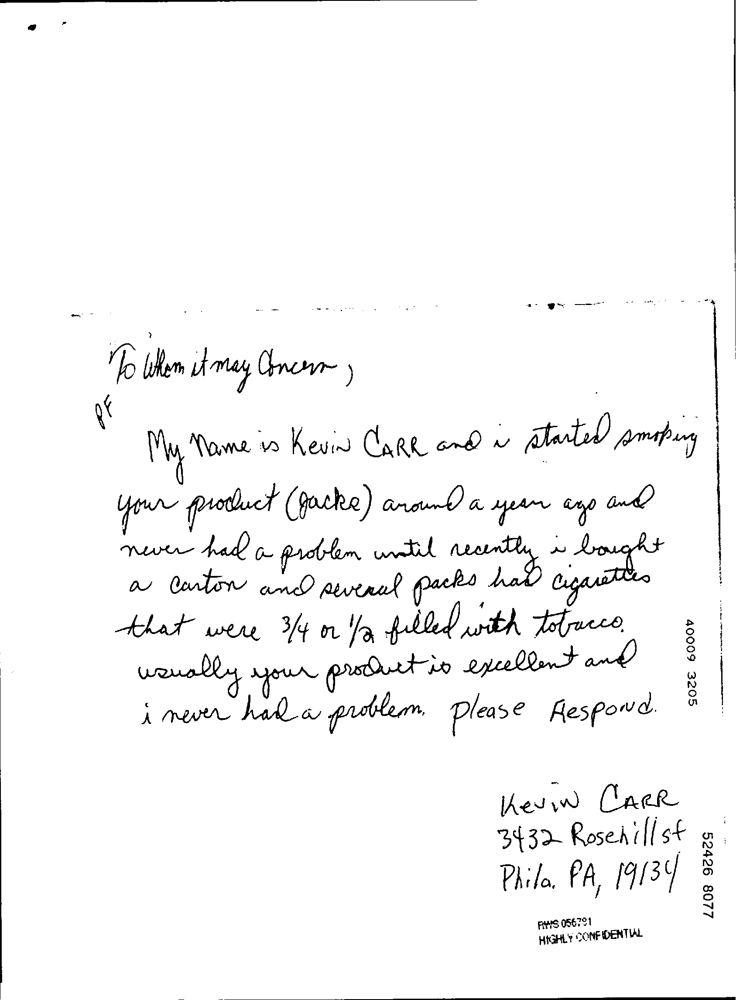 To Whom it may Concern,
PF
My Name is Kevin CARR and i started smoking
your product (Jacks) around a year ago and
never had a problem until recently i bought
a carton and several packs had cigarettes
that were 3/4 or 1/2 filled with tobacco.
usually your product is excellent and
i never had a problem. Please Respond.
Kevin CARR
3432 Rosehill st
Phila. PA, 19134
40009 3205
52426 8077
RWS 056791
HIGHLY CONFIDENTIAL